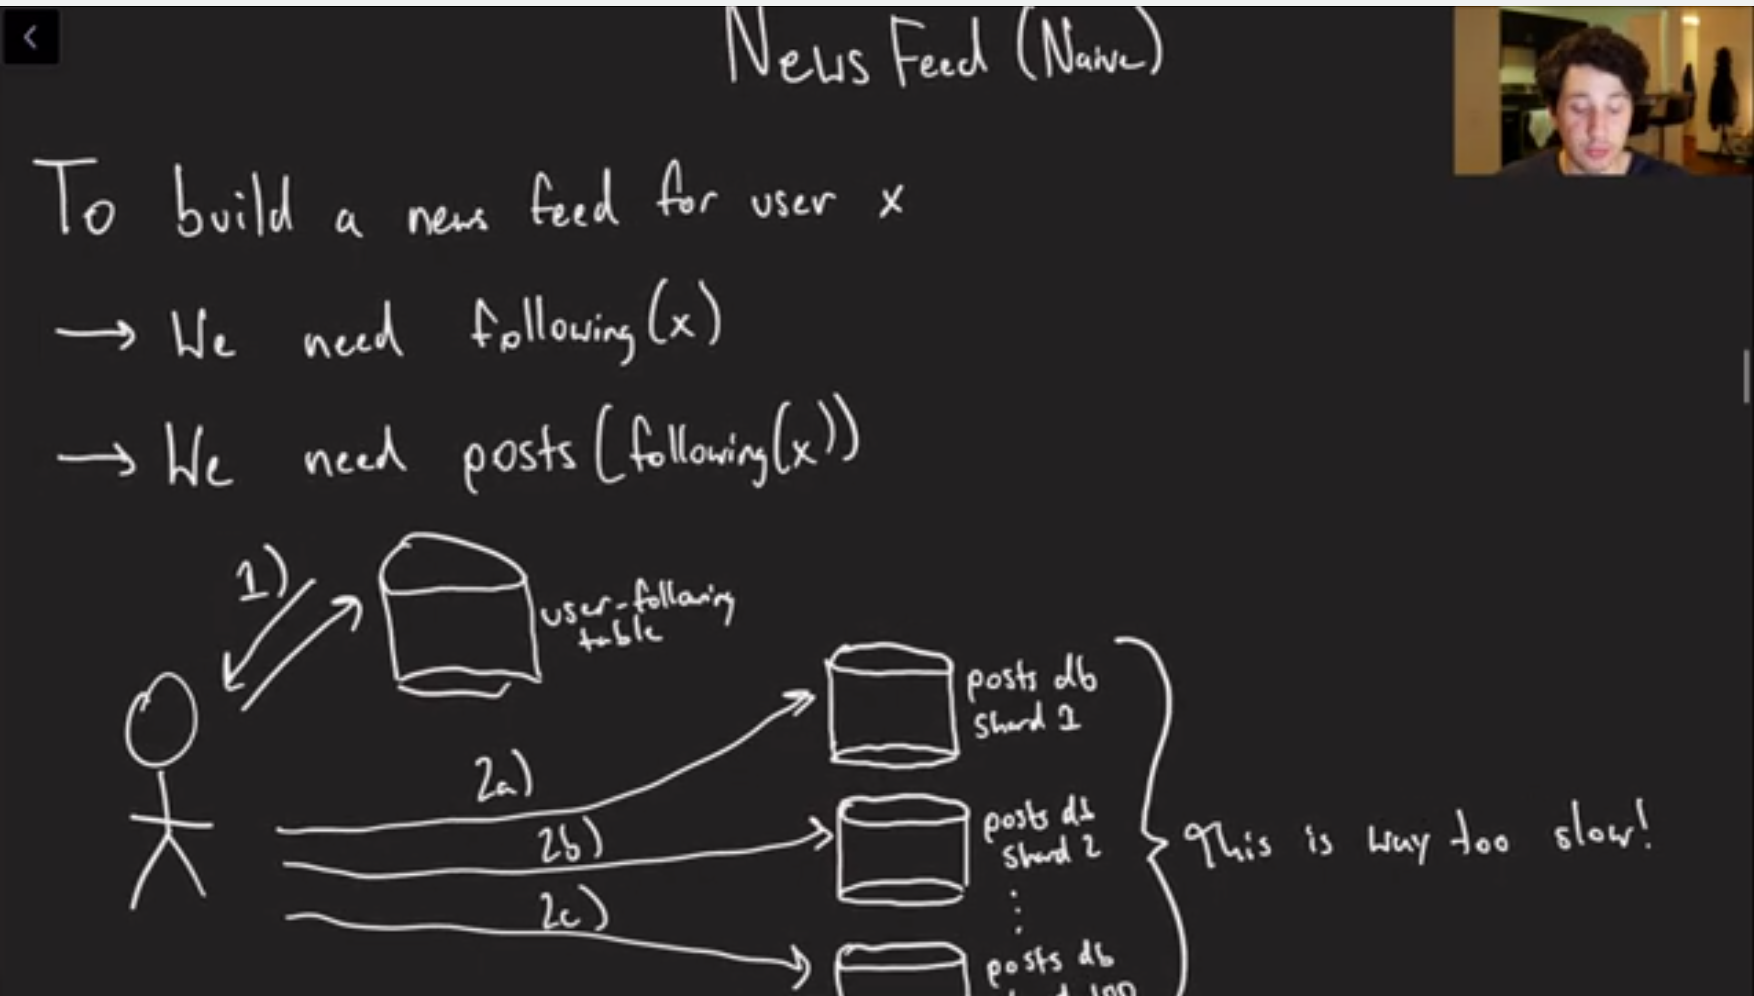 News Feed (Naive)
To build a news feed for user x
→ We need following(x)
→ We need posts(following(x))
1)
user-following
table
posts db
shard 1
2a)
posts db
shard 2
2b)
This is way too slow!
2c)
posts db